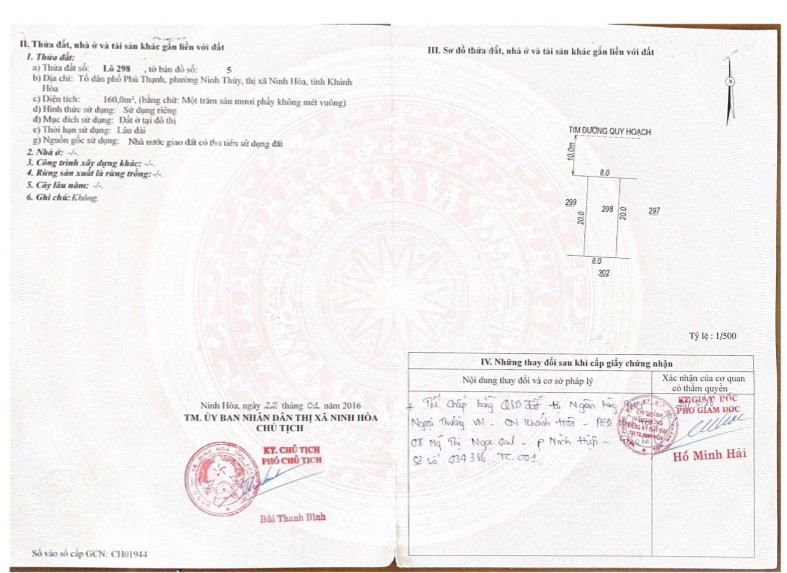 II. Thửa đất, nhà ở và tài sản khác gắn liền với đất
1. Thửa đất:
a) Thửa đất số: Lô 298 , tờ bản đồ số: 5
b) Địa chỉ: Tổ dân phố Phú Thạnh, phường Ninh Thủy, thị xã Ninh Hòa, tỉnh Khánh
Hòa
c) Diện tích: 160,0m², (bằng chữ: Một trăm sáu mươi phẩy không mét vuông)
d) Hình thức sử dụng: Sử dụng riêng
đ) Mục đích sử dụng: Đất ở tại đô thị
e) Thời hạn sử dụng: Lâu dài
g) Nguồn gốc sử dụng: Nhà nước giao đất có thu tiền sử dụng đất
2. Nhà ở: -/-
3. Công trình xây dựng khác: -/-
4. Rừng sản xuất là rừng trồng: -/-
5. Cây lâu năm: -/-
6. Ghi chú: Không.
Ninh Hòa, ngày 22 tháng 01 năm 2016
TM. ỦY BAN NHÂN DÂN THỊ XÃ NINH HÒA
CHỦ TỊCH
KT. CHỦ TỊCH
PHÓ CHỦ TỊCH
Bùi Thanh Bình
Số vào sổ cấp GCN: CH01944
III. Sơ đồ thửa đất, nhà ở và tài sản khác gắn liền với đất
TIM ĐƯỜNG QUY HOẠCH
10.0m
8.0
299
20.0
298
20.0
297
8.0
302
Tỷ lệ : 1/500
IV. Những thay đổi sau khi cấp giấy chứng nhận
Nội dung thay đổi và cơ sở pháp lý
Xác nhận của cơ quan
có thẩm quyền
Thế chấp bằng QSD đất tại Ngân hàng
Ngoại Thương VN - CN Khánh Hòa - PGD
Ninh Hiệp -
Số
KT.GIÁM ĐỐC
PHÓ GIÁM ĐỐC
Hồ Minh Hải